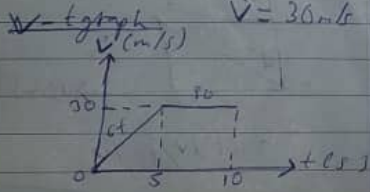 V-t graph V = 30m/s
V (m/s)
30
0 5 10 t(s)